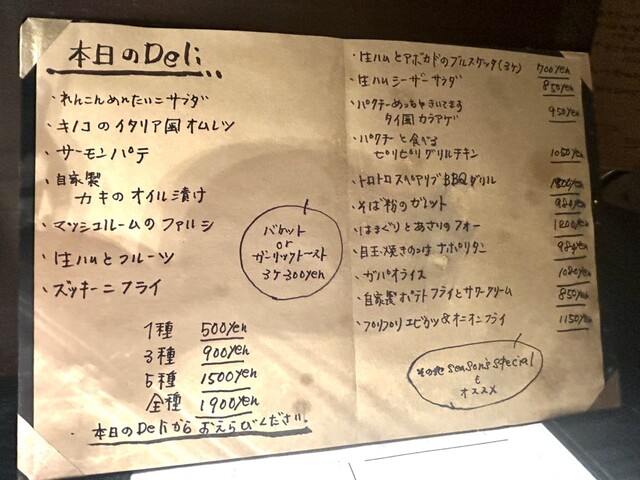 本日のDeli
・れんこんめんたいこサラダ
・キノコのイタリア風オムレツ
・サーモンパテ
・自家製
カキのオイル漬け
・マッシュルームのファルシ
・生ハムとフルーツ
・ズッキーニフライ
バケット
or
ガーリックトースト
3ケ300yen
1種 500yen
3種 900yen
5種 1500yen
全種 1900yen
・本日のDeliからおえらびください。
・生ハムとアボカドのブルスケッタ(3ケ) 700yen
・生ハムシーザーサラダ 850yen
・パクチーめっちゃきいてまる
タイ風カラアゲ 950yen
・パクチーと食べる
ピリピリグリルチキン 1050yen
・トロトロスペアリブBBQグリル 1800yen
・そば粉のガレット 980yen
・はまぐりとあさりのフォー 1200yen
・目玉焼きのっけナポリタン 980yen
・ガパオライス 1080yen
・自家製ポテトフライとサワークリーム 850yen
・プリプリエビカツ&オニオンフライ 1150yen
その他season's special
も
オススメ